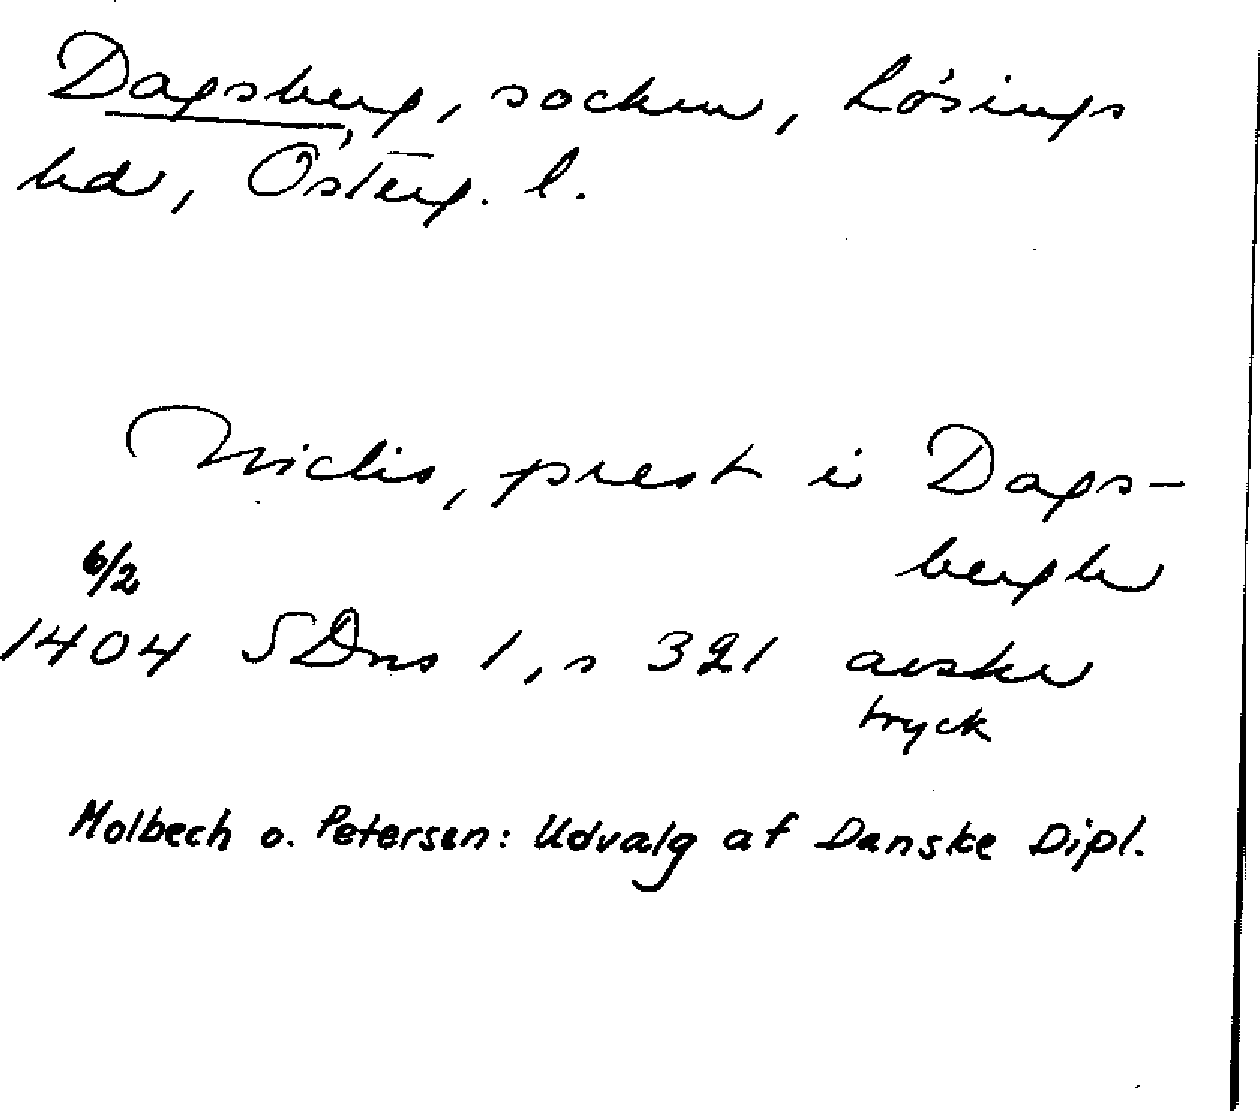 Dagsberg, socken, Lösings
hd, Österg. l.
Niclis, prest i Dags-
bergh
6/2
1404 SDns 1, s 321 avskr
tryck
Molbech o. Petersen: Udvalg af Danske Dipl.